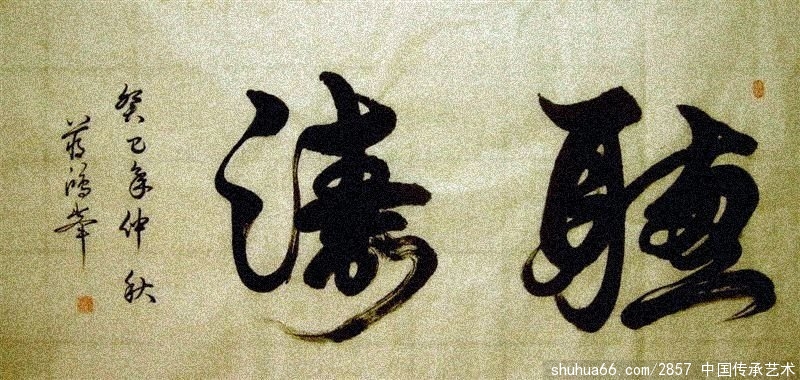 聽濤
癸巳年仲秋
蔣鴻峯
shuhua66.com/2857 中国传承艺术